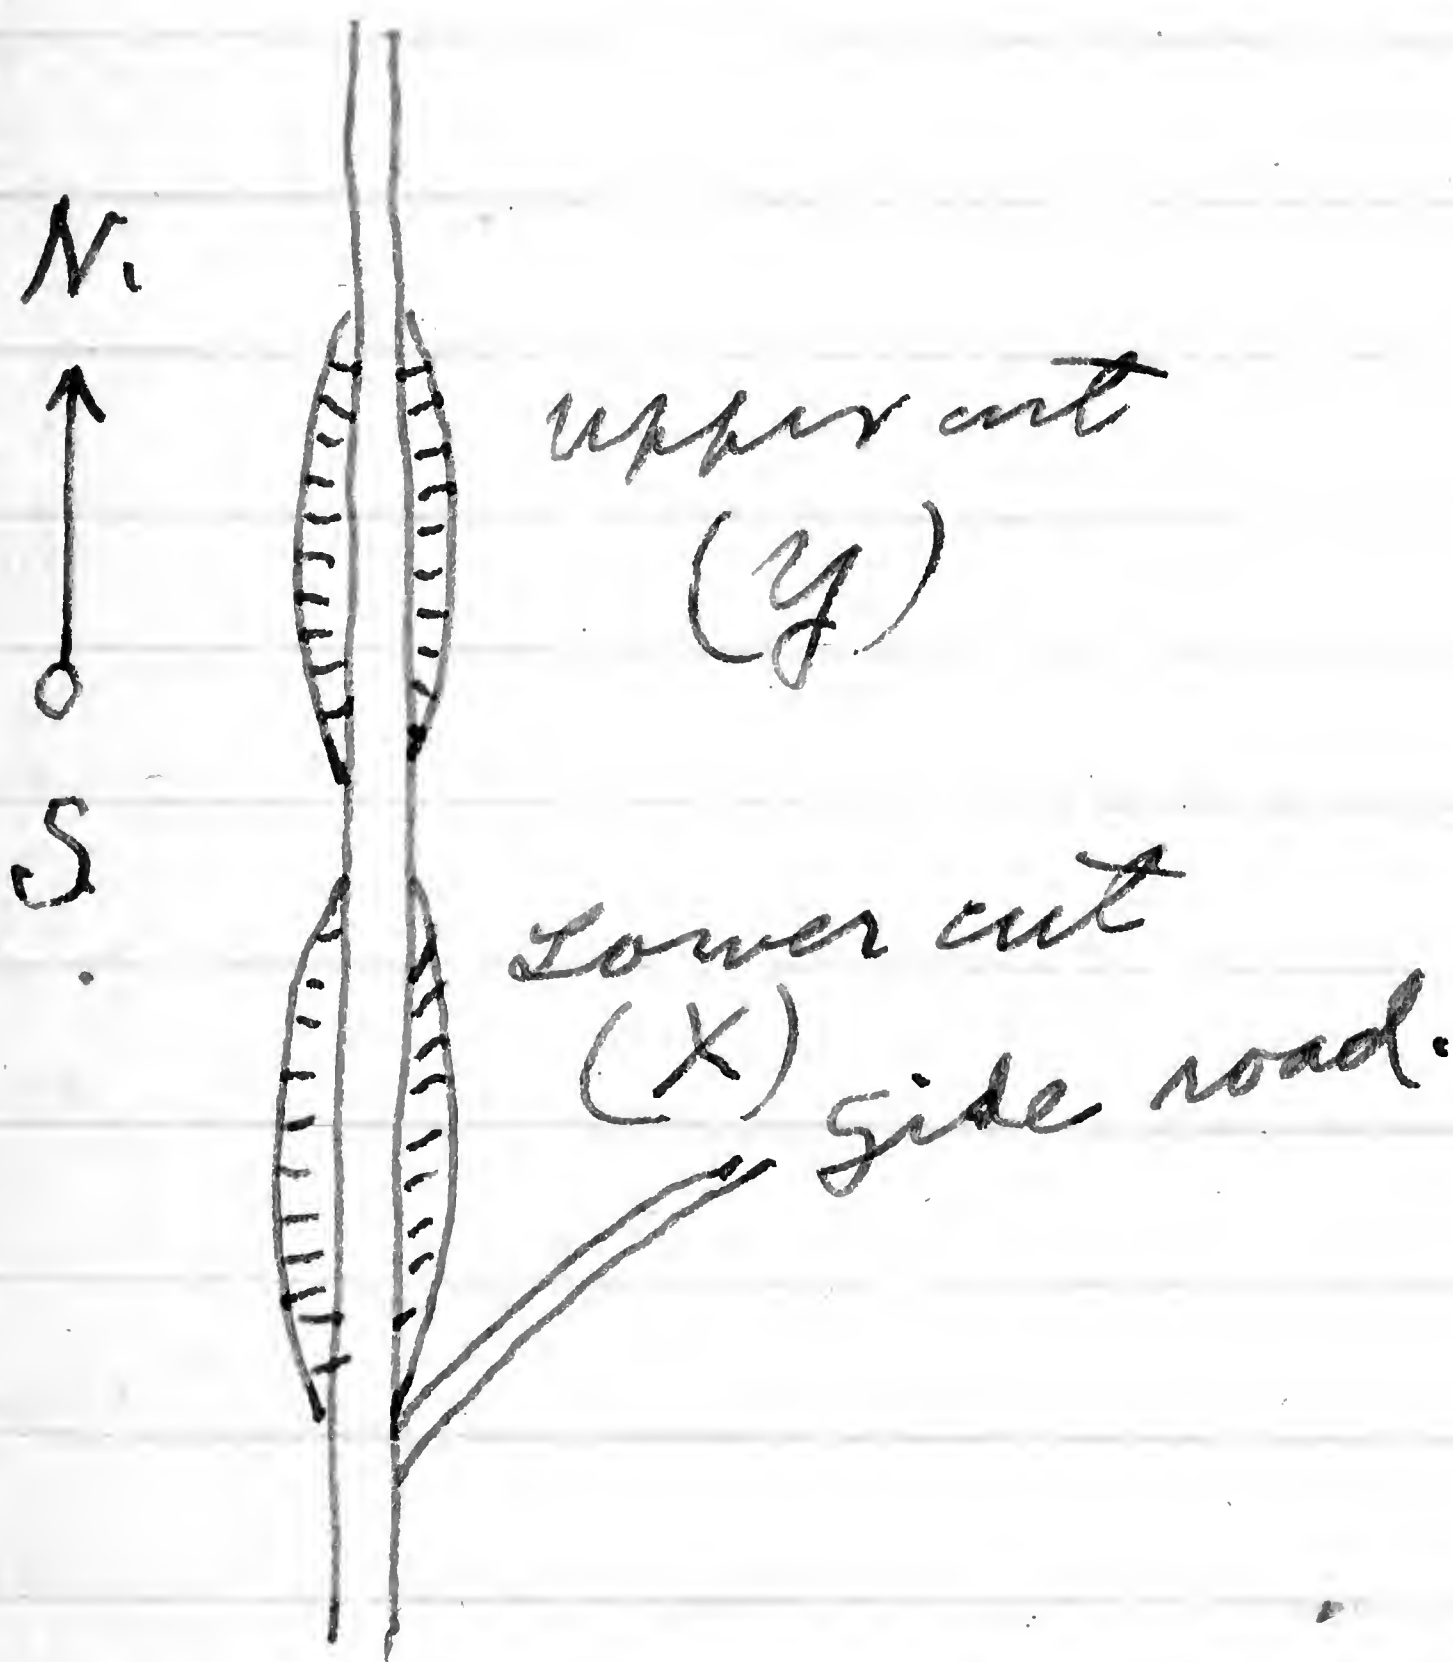 N.
upper cut
(y)
S
Lower cut
(X)
Side road.